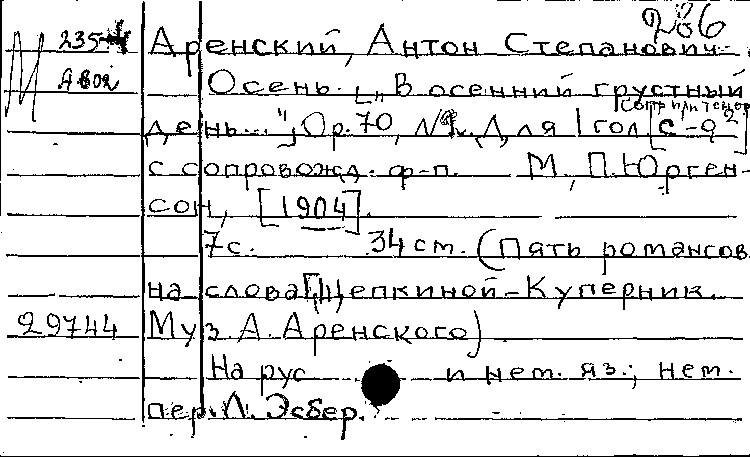 286
235-4 Аренский, Антон Степанович.
А802 Осень. [„В осенний грустный
[сопр. или тенор]
день..."] Ор. 70, №1. Для 1 гол. [c¹-g²]
с сопровожд. ф-п. М., П. Юрген-
сон, [1904].
7с. 34 см. (Пять романсов
на слова [Щепкиной-Куперник.
29744 Муз. А. Аренского)
На рус и нем. яз.; нем.
пер. Л. Эсбер.